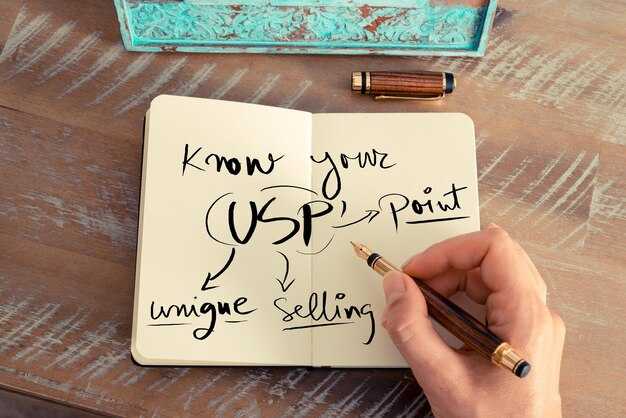 Know your
USP
point
unique selling